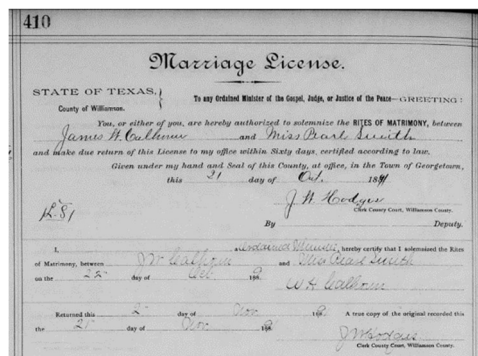 410
Marriage License.
STATE OF TEXAS,
County of Williamson.
To any Ordained Minister of the Gospel, Judge, or Justice of the Peace—GREETING:
You, or either of you, are hereby authorized to solemnize the RITES OF MATRIMONY, between
James W. Calhoun and Miss Pearl Smith
and make due return of this License to my office within Sixty days, certified according to law.
Given under my hand and Seal of this County, at office, in the Town of Georgetown,
this 21 day of Oct. 189
J W Hodges
Clerk County Court, Williamson County.
By Deputy.
I, Ordained Minister, hereby certify that I solemnized the Rites
of Matrimony, between JW Calhoun and Miss Pearl Smith
on the 22 day of Oct 189
W H Calhoun
Returned this 2 day of Nov 189 A true copy of the original recorded this
the day of Nov. 189
JW Hodges
Clerk County Court, Williamson County.